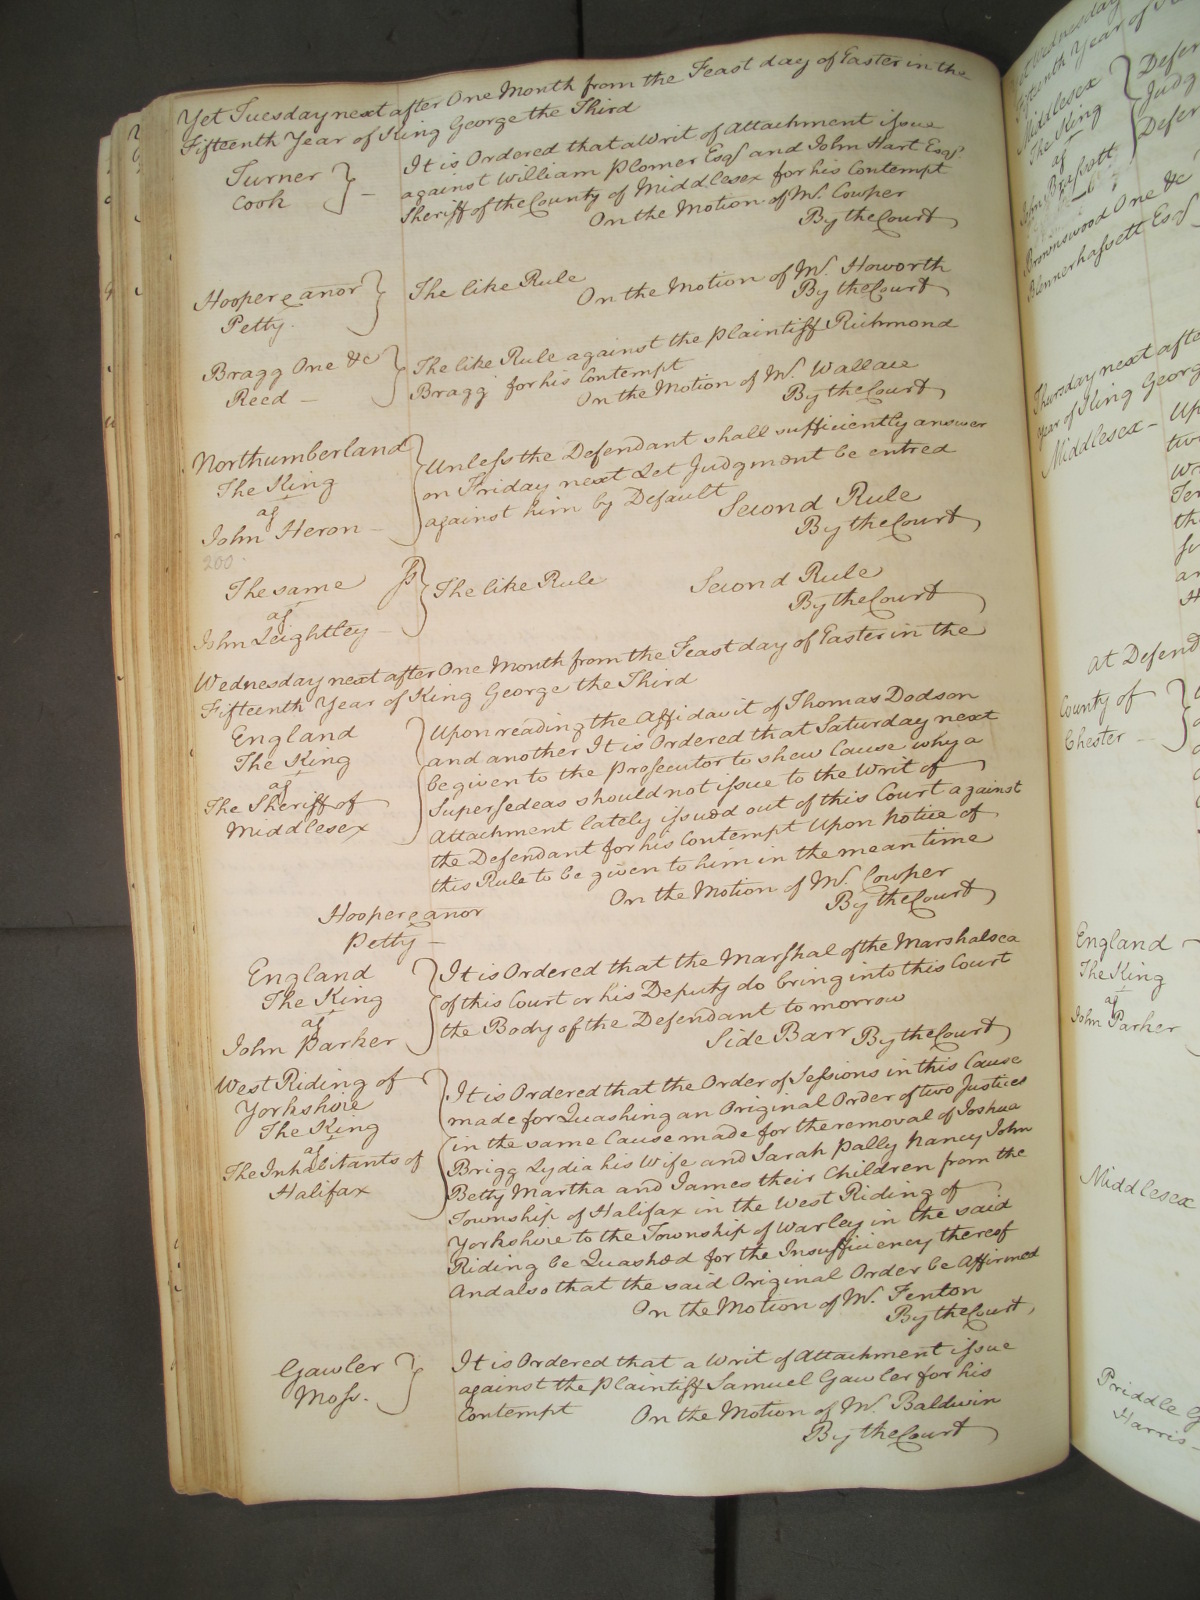 Yet Tuesday next after One Month from the Feast day of Easter in the
Fifteenth Year of King George the Third
Turner
Cook
It is Ordered that a Writ of Attachment issue
against William Plomer Esqr and John Hart Esqr
Sheriff of the County of Middlesex for his Contempt
On the Motion of Mr. Cowper
By the Court
Hooper & anor
Petty.
The like Rule
On the Motion of Mr. Howorth
By the Court
Bragg One &c
Reed
The like Rule against the Plaintiff Richmond
Bragg for his Contempt
On the Motion of Mr. Wallace
By the Court
Northumberland
The King
agt
John Heron
Unless the Defendant shall sufficiently answer
on Friday next Let Judgment be entred
against him by Default
Second Rule
By the Court
200
The same
agt
John Leightley
ss
The like Rule
Second Rule
By the Court
Wednesday next after One Month from the Feast day of Easter in the
Fifteenth Year of King George the Third
England
The King
agt
The Sheriff of
Middlesex
Upon reading the Affidavit of Thomas Dodson
and another It is Ordered that Saturday next
be given to the Prosecutor to shew Cause why a
Supersedeas should not issue to the Writ of
Attachment lately issued out of this Court against
the Defendant for his Contempt Upon notice of
this Rule to be given to him in the mean time
On the Motion of Mr. Cowper
By the Court
Hooper & anor
Petty
England
The King
agt
John Parker
It is Ordered that the Marshal of the Marshalsea
of this Court or his Deputy do bring into this Court
the Body of the Defendant to morrow
Side Barr By the Court
West Riding of
Yorkshire
The King
agt
The Inhabitants of
Halifax
It is Ordered that the Order of Sessions in this Cause
made for Quashing an Original Order of two Justices
in the same Cause made for the removal of Joshua
Brigg Lydia his Wife and Sarah Pally Nancy John
Betty Martha and James their Children from the
Township of Halifax in the West Riding of
Yorkshire to the Township of Warley in the said
Riding be Quashed for the Insufficiency thereof
And also that the said Original Order be Affirmed
On the Motion of Mr. Fenton
By the Court
Gawler
Moss.
It is Ordered that a Writ of Attachment issue
against the Plaintiff Samuel Gawler for his
Contempt On the Motion of Mr. Baldwin
By the Court
Fifteenth Year of
Middlesex
The King
agt
John Bassett
Defen
Judg
Defen
Brownswood One &c
Blennerhassett Esqr
Thursday next afte
Year of King Georg
Middlesex
Up
at Defend
County of
Chester
England
The King
agt
John Parker
Middlesex
Priddle G
Harris